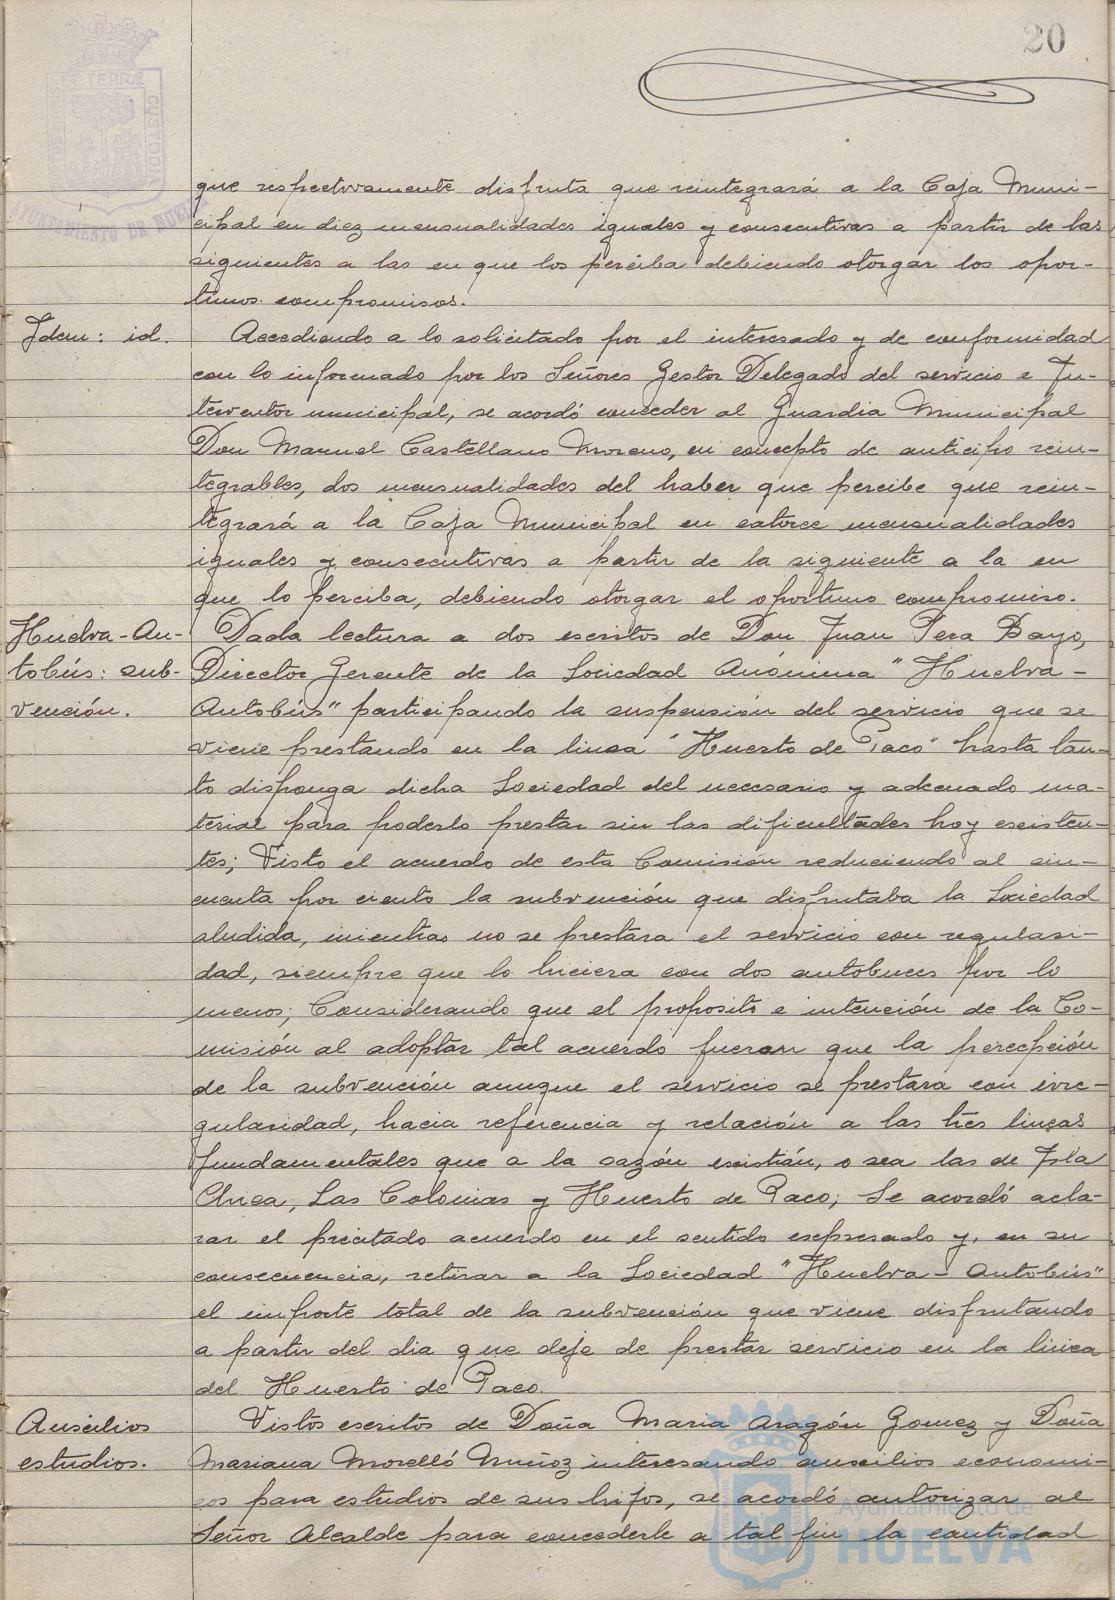 20
que respectivamente disfruta que reintegrará a la Caja Muni-
cipal en diez mensualidades iguales y consecutivas a partir de las
siguientes a las en que los perciba debiendo otorgar los opor-
tunos compromisos.
Idem: id.
Accediendo a lo solicitado por el interesado y de conformidad
con lo informado por los Señores Gestor Delegado del servicio e In-
terventor municipal, se acordó conceder al Guardia Municipal
Don Manuel Castellano Moreno, en concepto de anticipo rein-
tegrables, dos mensualidades del haber que percibe que rein-
tegrará a la Caja Municipal en catorce mensualidades
iguales y consecutivas a partir de la siguiente a la en
que lo perciba, debiendo otorgar el oportuno compromiso.
Huelva-Au-
tobús: sub-
vención.
Dada lectura a dos escritos de Don Juan Pera Bayo,
Director Gerente de la Sociedad Anónima "Huelva-
Autobús" participando la suspensión del servicio que se
viene prestando en la linea "Huerto de Paco" hasta tan-
to disponga dicha Sociedad del necesario y adecuado ma-
terial para poderlo prestar sin las dificultades hoy existen-
tes; Visto el acuerdo de esta Comisión reduciendo al cin-
cuenta por ciento la subvención que disfrutaba la Sociedad
aludida, mientras no se prestara el servicio con regulari-
dad, siempre que lo hiciera con dos autobuces por lo
menos; Considerando que el proposito e intención de la Co-
misión al adoptar tal acuerdo fueron que la percepción
de la subvención aunque el servicio se prestara con irre-
gularidad, hacia referencia y relación a las tres lineas
fundamentales que a la sazón existián, o sea las de Isla
Chica, Las Colonias y Huerto de Paco; Se acordó acla-
rar el precitado acuerdo en el sentido expresado y, en su
consecuencia, retirar a la Sociedad "Huelva-Autobús"
el importe total de la subvención que viene disfrutando
a partir del dia que deje de prestar servicio en la linea
del Huerto de Paco.
Auxilios
estudios.
Vistos escritos de Doña Maria Aragón Gomez y Doña
Mariana Morelló Muñoz interesando auxilios economi-
cos para estudios de sus hijos, se acordó autorizar al
Señor Alcalde para concederle a tal fin la cantidad
Ayuntamiento de
HUELVA